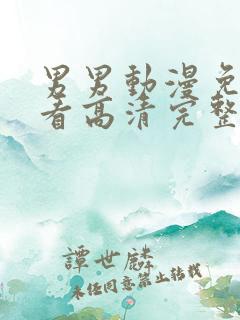 男男動漫免
看高清完整
譚世麟
未经同意禁止转载